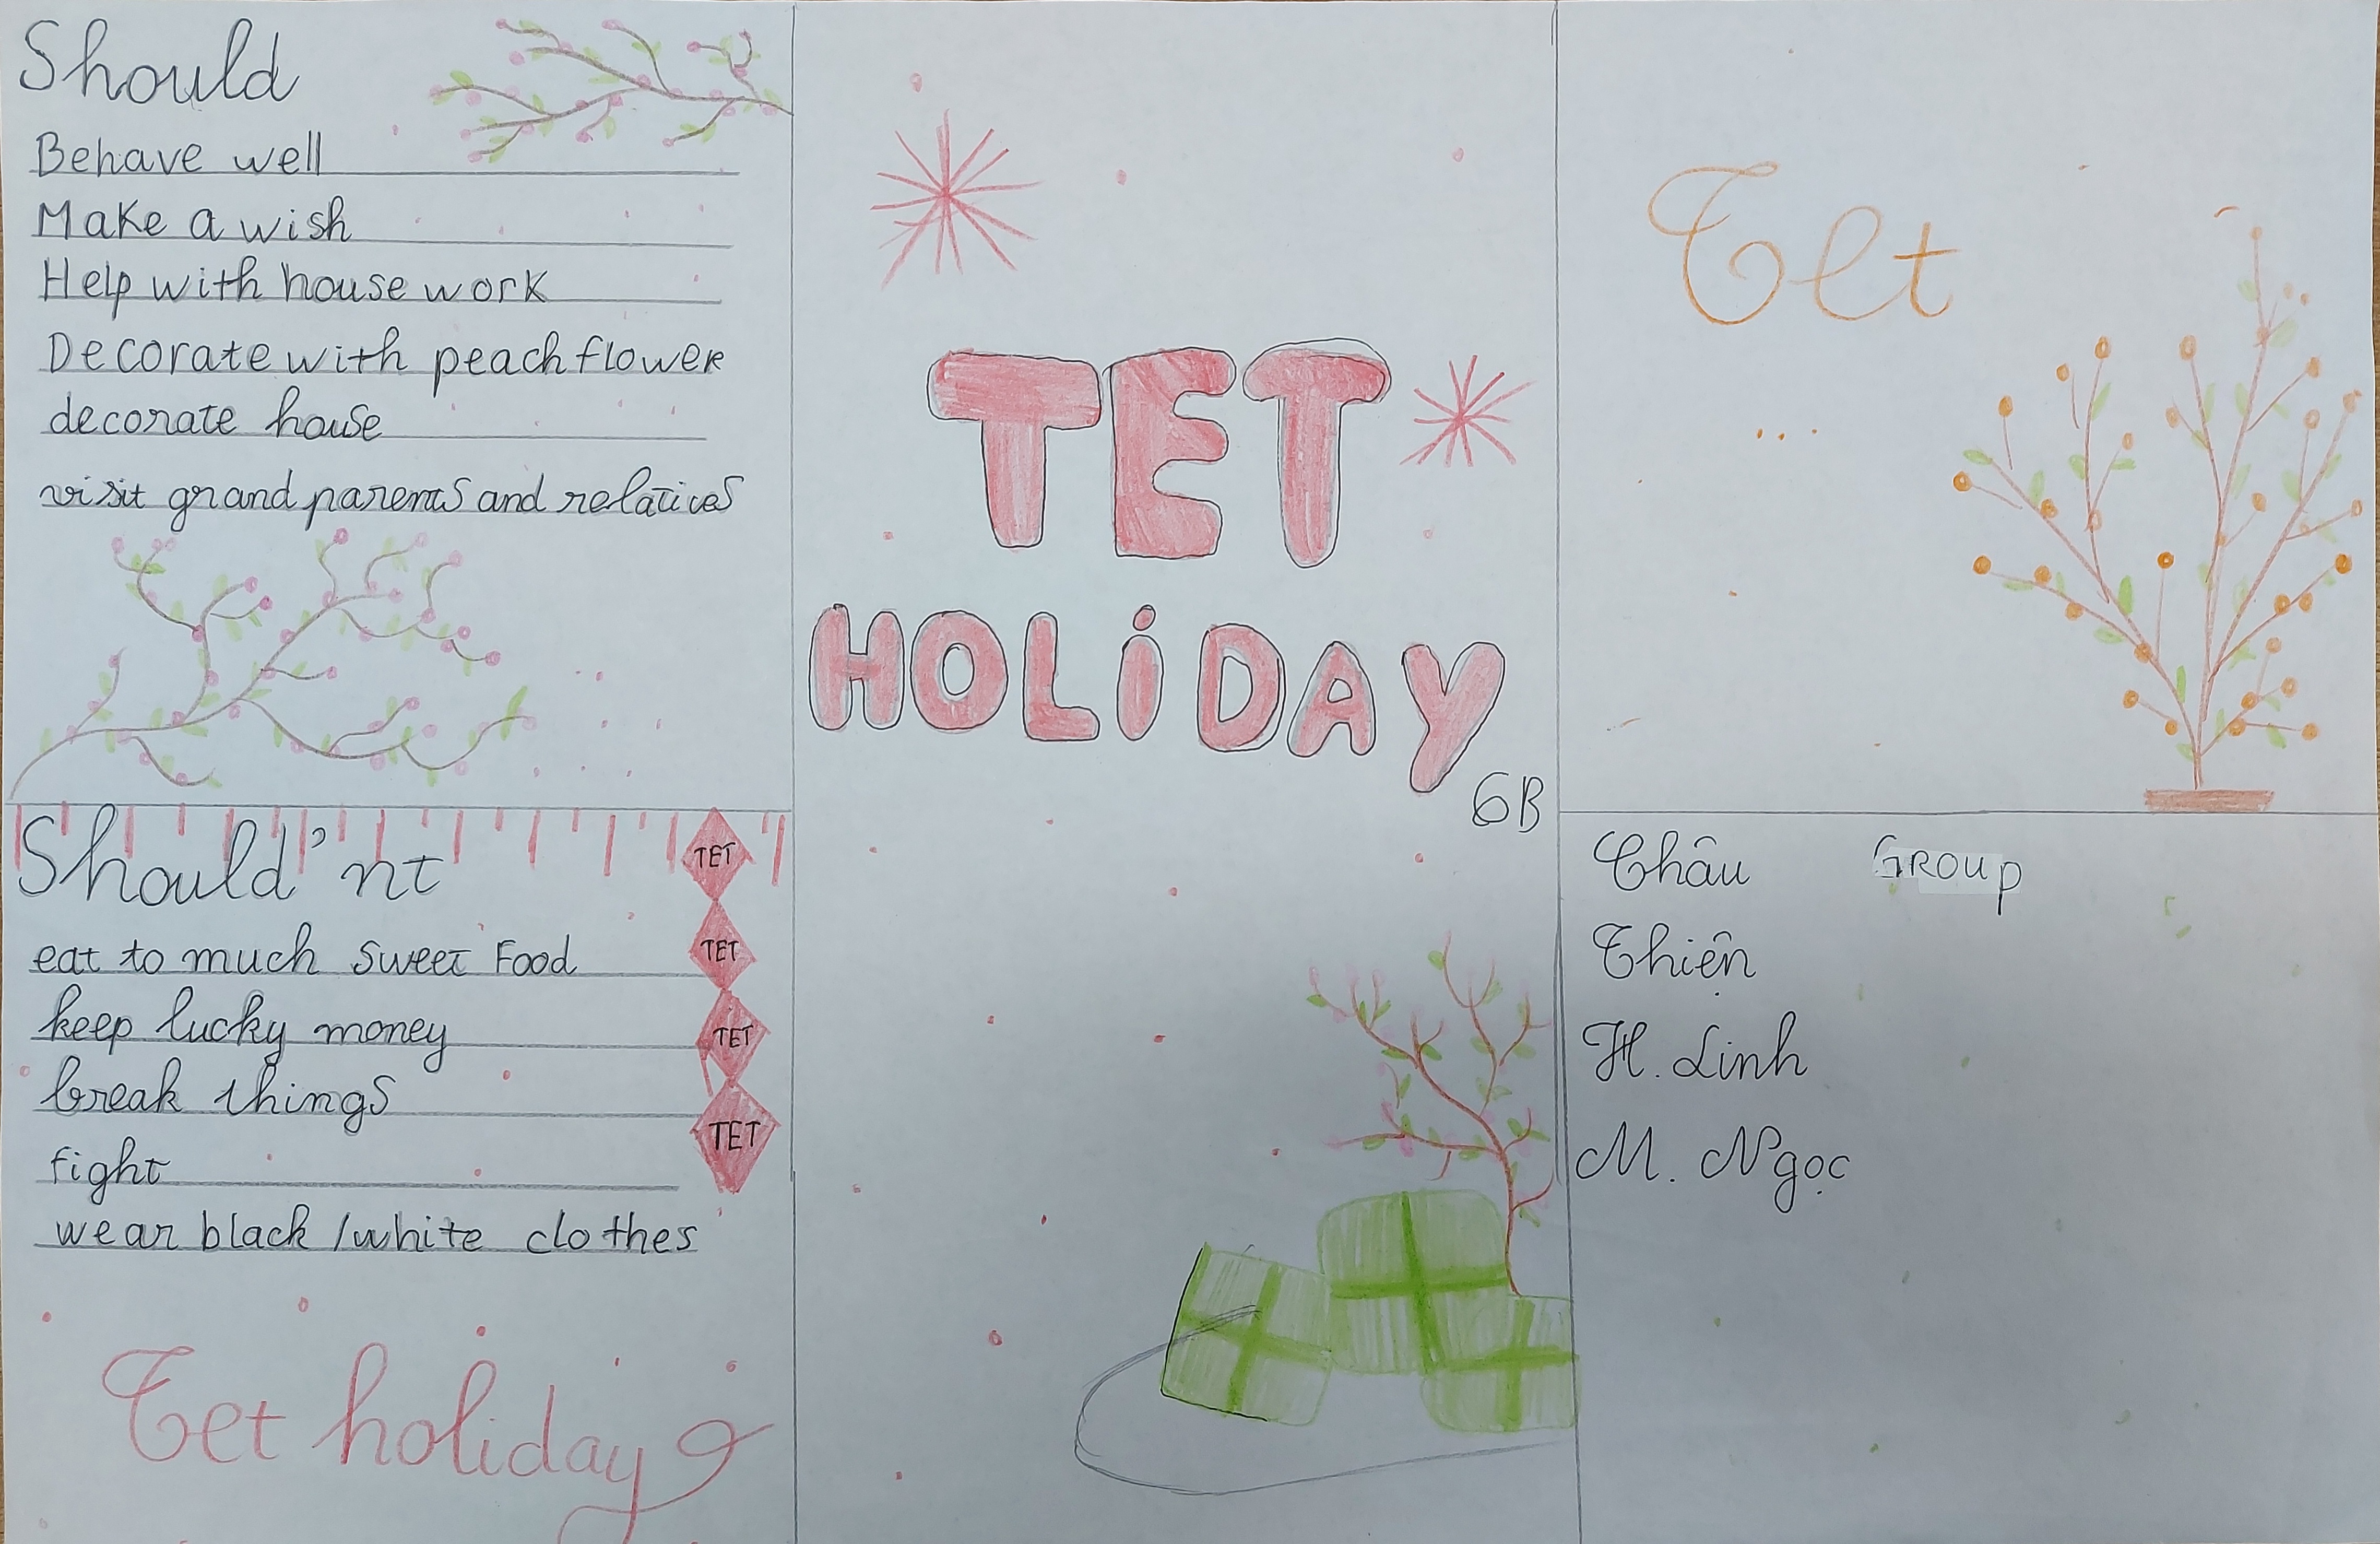 Should
Behave well
Make a wish
Help with house work
Decorate with peach flower
decorate house
visit grand parents and relatives
Should'nt
eat to much sweet Food
keep lucky money
break things
fight
wear black / white clothes
TET
TET
TET
TET
Tet holiday
TET
HOLiDAY
6B
Tet
Châu
GROUP
Thiện
H. Linh
M. Ngọc